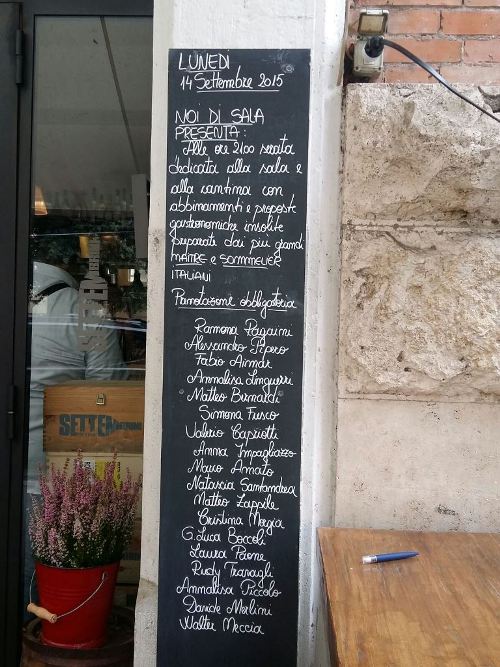 LUNEDI
14 Settembre 2015
NOI DI SALA
PRESENTA:
Alle ore 2100 serata
dedicata alla sala e
alla cantina con
abbinamenti e proposte
gastronomiche insolite
preparate dai piu grandi
MAITRE e SOMMELIER
ITALIANI
Prenotazione obbligatoria
Ramona Ragaini
Alessandro Pipero
Fabio
Annalisa Linguerri
Matteo Bernardi
Simona Fusco
Valerio Capriotti
Anna Impagliazzo
Mauro Amato
Natascia Santandrea
Matteo Zappile
Cristina Morgia
G.Luca Boccoli
Laura Paone
Rudy Travagli
Annalisa Piccolo
Davide Merlini
Walter Meccia
SETTEM